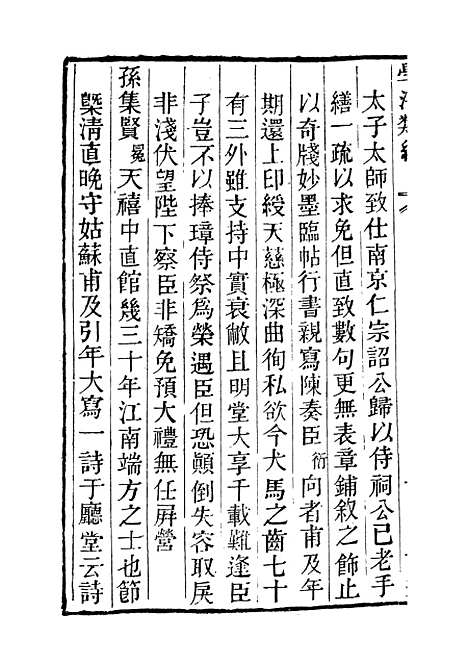 學海類編
太子太師致仕南京仁宗詔公歸以侍祠公已老手
繕一疏以求免但直致數句更無表章鋪敘之飾止
以奇牋妙墨臨帖行書親寫陳奏臣衍向者甫及年
期還上印綬天慈極深曲徇私欲今犬馬之齒七十
有三外雖支持中實衰敝且明堂大享千載難逢臣
子豈不以捧璋侍祭爲榮遇臣但恐顚倒失容取戾
非淺伏望陛下察臣非矯免預大禮無任屏營
孫集賢冕天禧中直館幾三十年江南端方之士也節
槩清直晚守姑蘇甫及引年大寫一詩于廳堂云詩